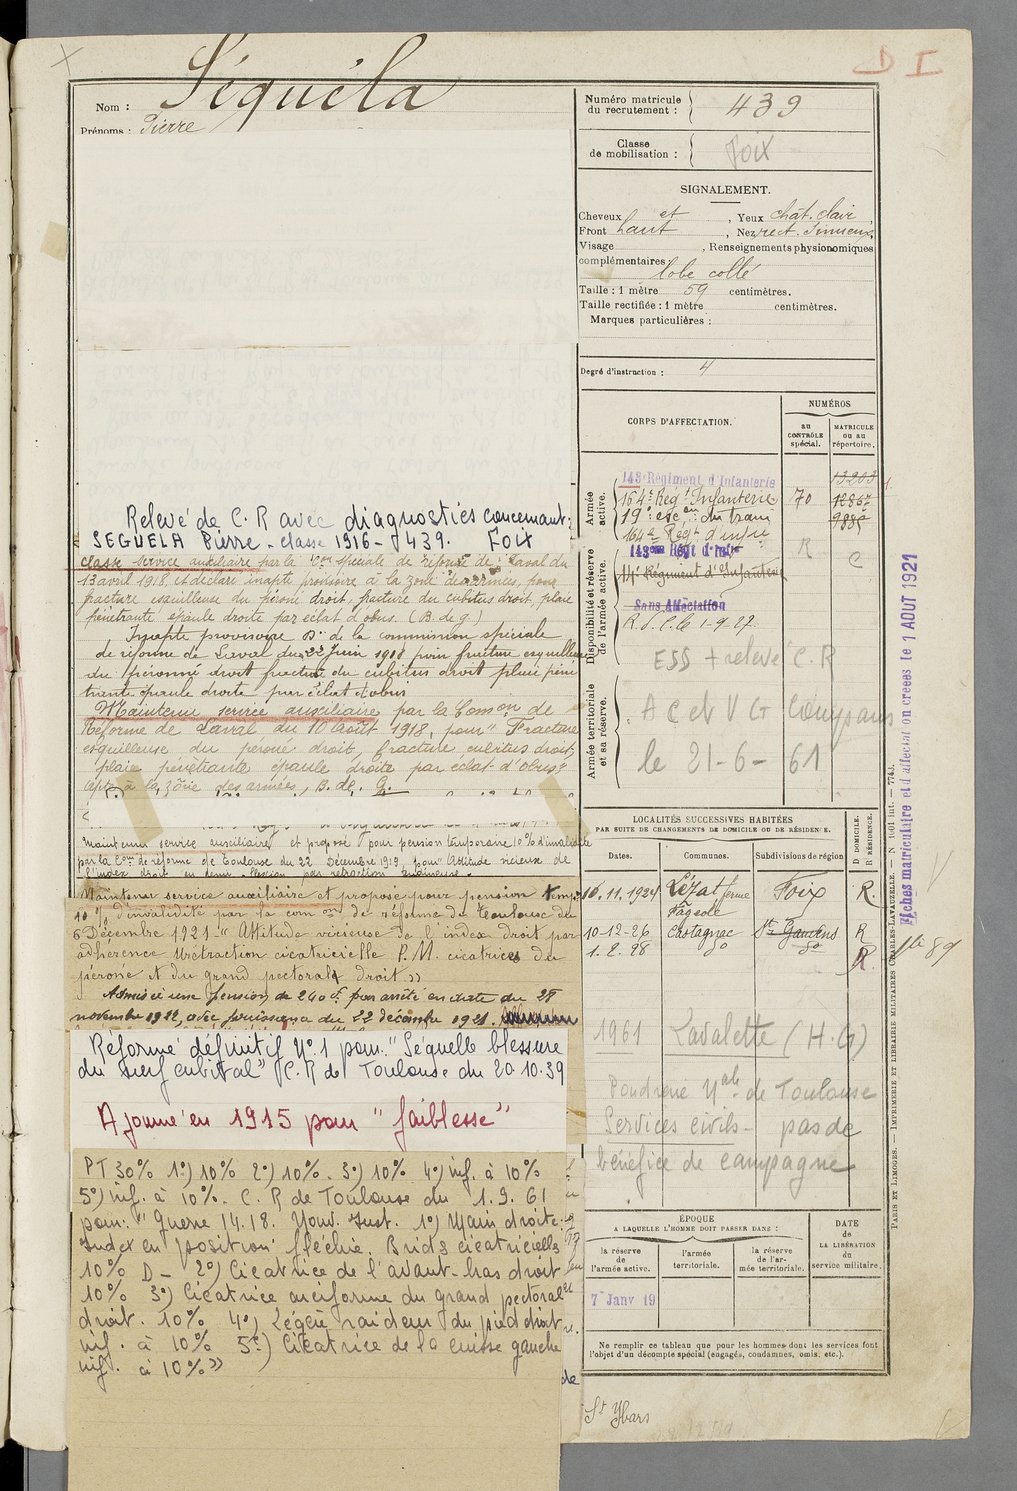 D I
Nom : Séguéla
Prénoms : Pierre
Relevé de C. R avec diagnostics concernant :
SEGUELA Pierre - classe 1916 - 439. Foix
classe service auxiliaire par la Com spéciale de réforme de Laval du
13 avril 1918, et déclaré inapte provisoire à la zone des armées, pour
fracture esquilleuse du péroné droit, fracture du cubitus droit, plaie
pénétrante épaule droite par éclat d'obus. (B. de g.)
Inapte provisoire Don de la commission spéciale
de réforme de Laval du 22 Juin 1918 pour fracture esquilleuse
du péronné droit fracture du cubitus droit plaie péné
trante épaule droite par éclat d'obus
Maintenu service auxiliaire par la Comson de
Réforme de Laval du 10 Août 1918, pour " Fracture
esquilleuse du péroné droit, fracture cubitus droit,
plaie pénétrante épaule droite par éclat d'obus"
apte à la zone des armées, B. de G.
Maintenu service auxiliaire et proposé pour pension temporaire 10 % d'invalidité
par la Com de réforme de Toulouse du 22 Décembre 1919, pour "Attitude vicieuse de
l'index droit en demi flexion par rétraction
Maintenu service auxiliaire et proposé pour pension temp.
10 % d'invalidité par la com on de réforme de Toulouse du
6 Décembre 1921 "Attitude vicieuse de l'index droit par
adhérence rétraction cicatricielle P.M. cicatrices du
péroné et du grand pectoral droit"
Admis à une pension de 240 f. par arrêté en date du 28
novembre 1922, avec jouissance du 22 décembre 1921.
Réformé définitif N° 1 pour " Séquelle blessure
du nerf cubital" C. R de Toulouse du 20.10.39
Ajourné en 1915 pour " faiblesse"
PT 30% 1°) 10% 2°) 10%. 3°) 10% 4°) inf. à 10%
5°) inf. à 10%. C. R de Toulouse du 1.9.61
pour : " Guerre 14.18. Nouv. Inst. 1°) Main droite :
Index en position fléchie. Brides cicatricielles
10% D - 2°) Cicatrice de l'avant-bras droit
10% 3°) Cicatrice arciforme du grand pectoral
droit. 10% 4°) Légère raideur du pied droit
inf. à 10% 5°) Cicatrice de la cuisse gauche
inf. à 10%"
Numéro matricule
du recrutement : 439
Classe
de mobilisation : Foix
SIGNALEMENT.
Cheveux et , Yeux chât. clair ,
Front haut , Nez rect. sinueux,
Visage , Renseignements physionomiques
complémentaires
lobe collé
Taille : 1 mètre 59 centimètres.
Taille rectifiée : 1 mètre centimètres.
Marques particulières :
Degré d'instruction : 4
CORPS D'AFFECTATION.
NUMÉROS
au
CONTRÔLE
spécial.
MATRICULE
ou au
répertoire.
Armée
active.
143e Régiment d'Infanterie 13203
164e Regt Infanterie 70 12867
19e escon du train 9886
164e Regt d'infie
Disponibilité et réserve
de l'armée active.
143eme Régt d'Infie R
14e Régiment d'Infanterie C
Sans Affectation
R.d.C. le 1-9-27
ESS + relevé C. R
Armée territoriale
et sa réserve.
A C et V G Compans
le 21-6-61
LOCALITÉS SUCCESSIVES HABITÉES
PAR SUITE DE CHANGEMENTS DE DOMICILE OU DE RÉSIDENCE.
D DOMICILE.
R RÉSIDENCE.
Dates. Communes. Subdivisions de région
10.11.1924 Lézat ferme Foix R.
Fagède
10-12-26 Castagnac St Gaudens R
1. 2. 28 do do R.
1961 Lavalette (H.G)
Poudrerie Nale de Toulouse
Services civils - pas de
bénéfice de campagne
ÉPOQUE
A LAQUELLE L'HOMME DOIT PASSER DANS :
la réserve
de l'armée active.
l'armée
territoriale.
la réserve
de l'ar-
mée territoriale.
DATE
de
LA LIBÉRATION
du
service militaire.
7 Janv 19
Ne remplir ce tableau que pour les hommes dont les services font
l'objet d'un décompte spécial (engagés, condamnés, omis, etc.).
St Ybars
Fiches matriculaire et d'affectation créées le 1 AOUT 1921
PARIS ET LIMOGES. — IMPRIMERIE ET LIBRAIRIE MILITAIRES CHARLES-LAVAUZELLE. — N° 1001 int. — 7743.